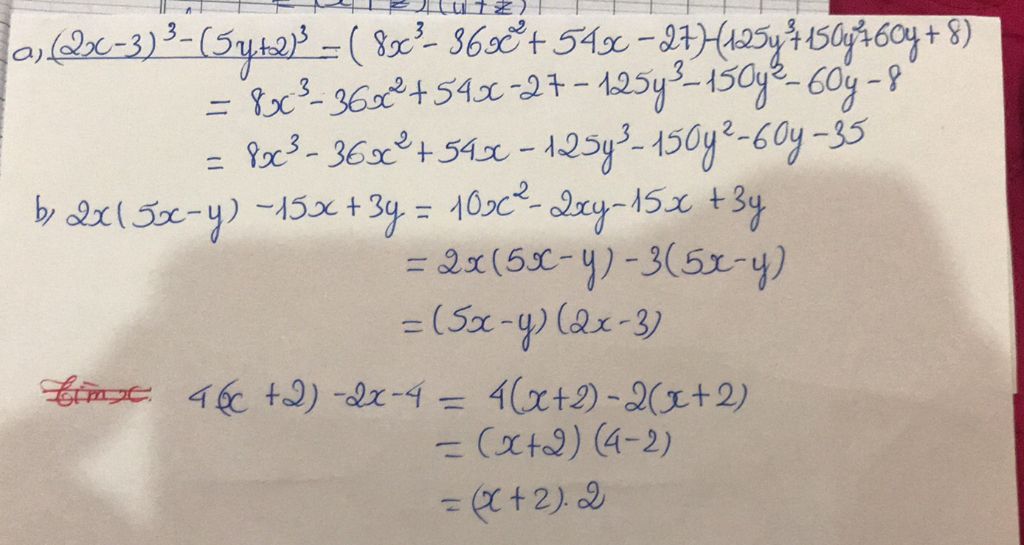 a, (2x-3)³-(5y+2)³ = (8x³-36x²+54x-27)-(125y³+150y²+60y+8)
= 8x³-36x²+54x-27-125y³-150y²-60y-8
= 8x³-36x²+54x-125y³-150y²-60y-35
b, 2x(5x-y)-15x+3y = 10x²-2xy-15x+3y
= 2x(5x-y)-3(5x-y)
= (5x-y)(2x-3)
tìm x. 4(x+2)-2x-4 = 4(x+2)-2(x+2)
= (x+2)(4-2)
= (x+2).2